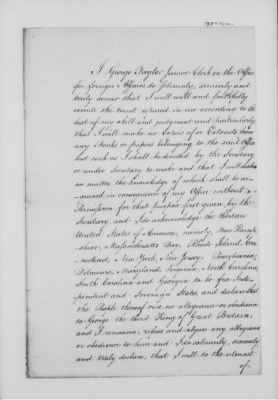 I George Taylor Junior Clerk in the Office
for foreign Affairs do solemnly, sincerely and
truly swear that I will well and faithfully
execute the trust reposed in me according to the
best of my skill and judgment and particularly
that I will make no Copies of or Extracts from
any Books or papers belonging to the said Office
but such as I shall be directed by the Secretary
or under Secretary to make and that I will disclose
no matter the knowledge of which shall be ac-
quired in consequence of my Office without a
Permission for that purpose first given by the
Secretary, and I do acknowledge the thirteen
United States of America, namely, New Hamp-
shire, Massachusetts Bay, Rhode Island, Con-
necticut, New York, New Jersey, Pennsylvania,
Delaware, Maryland, Virginia, North Carolina,
South Carolina and Georgia to be free, Inde-
pendent and Sovereign States, and declare that
the People thereof owe no allegiance or obedience
to George the third King of Great Britain
and I renounce, refuse and abjure any allegiance
or obedience to him and I do solemnly, sincerely
and truly declare, that I will to the utmost
of